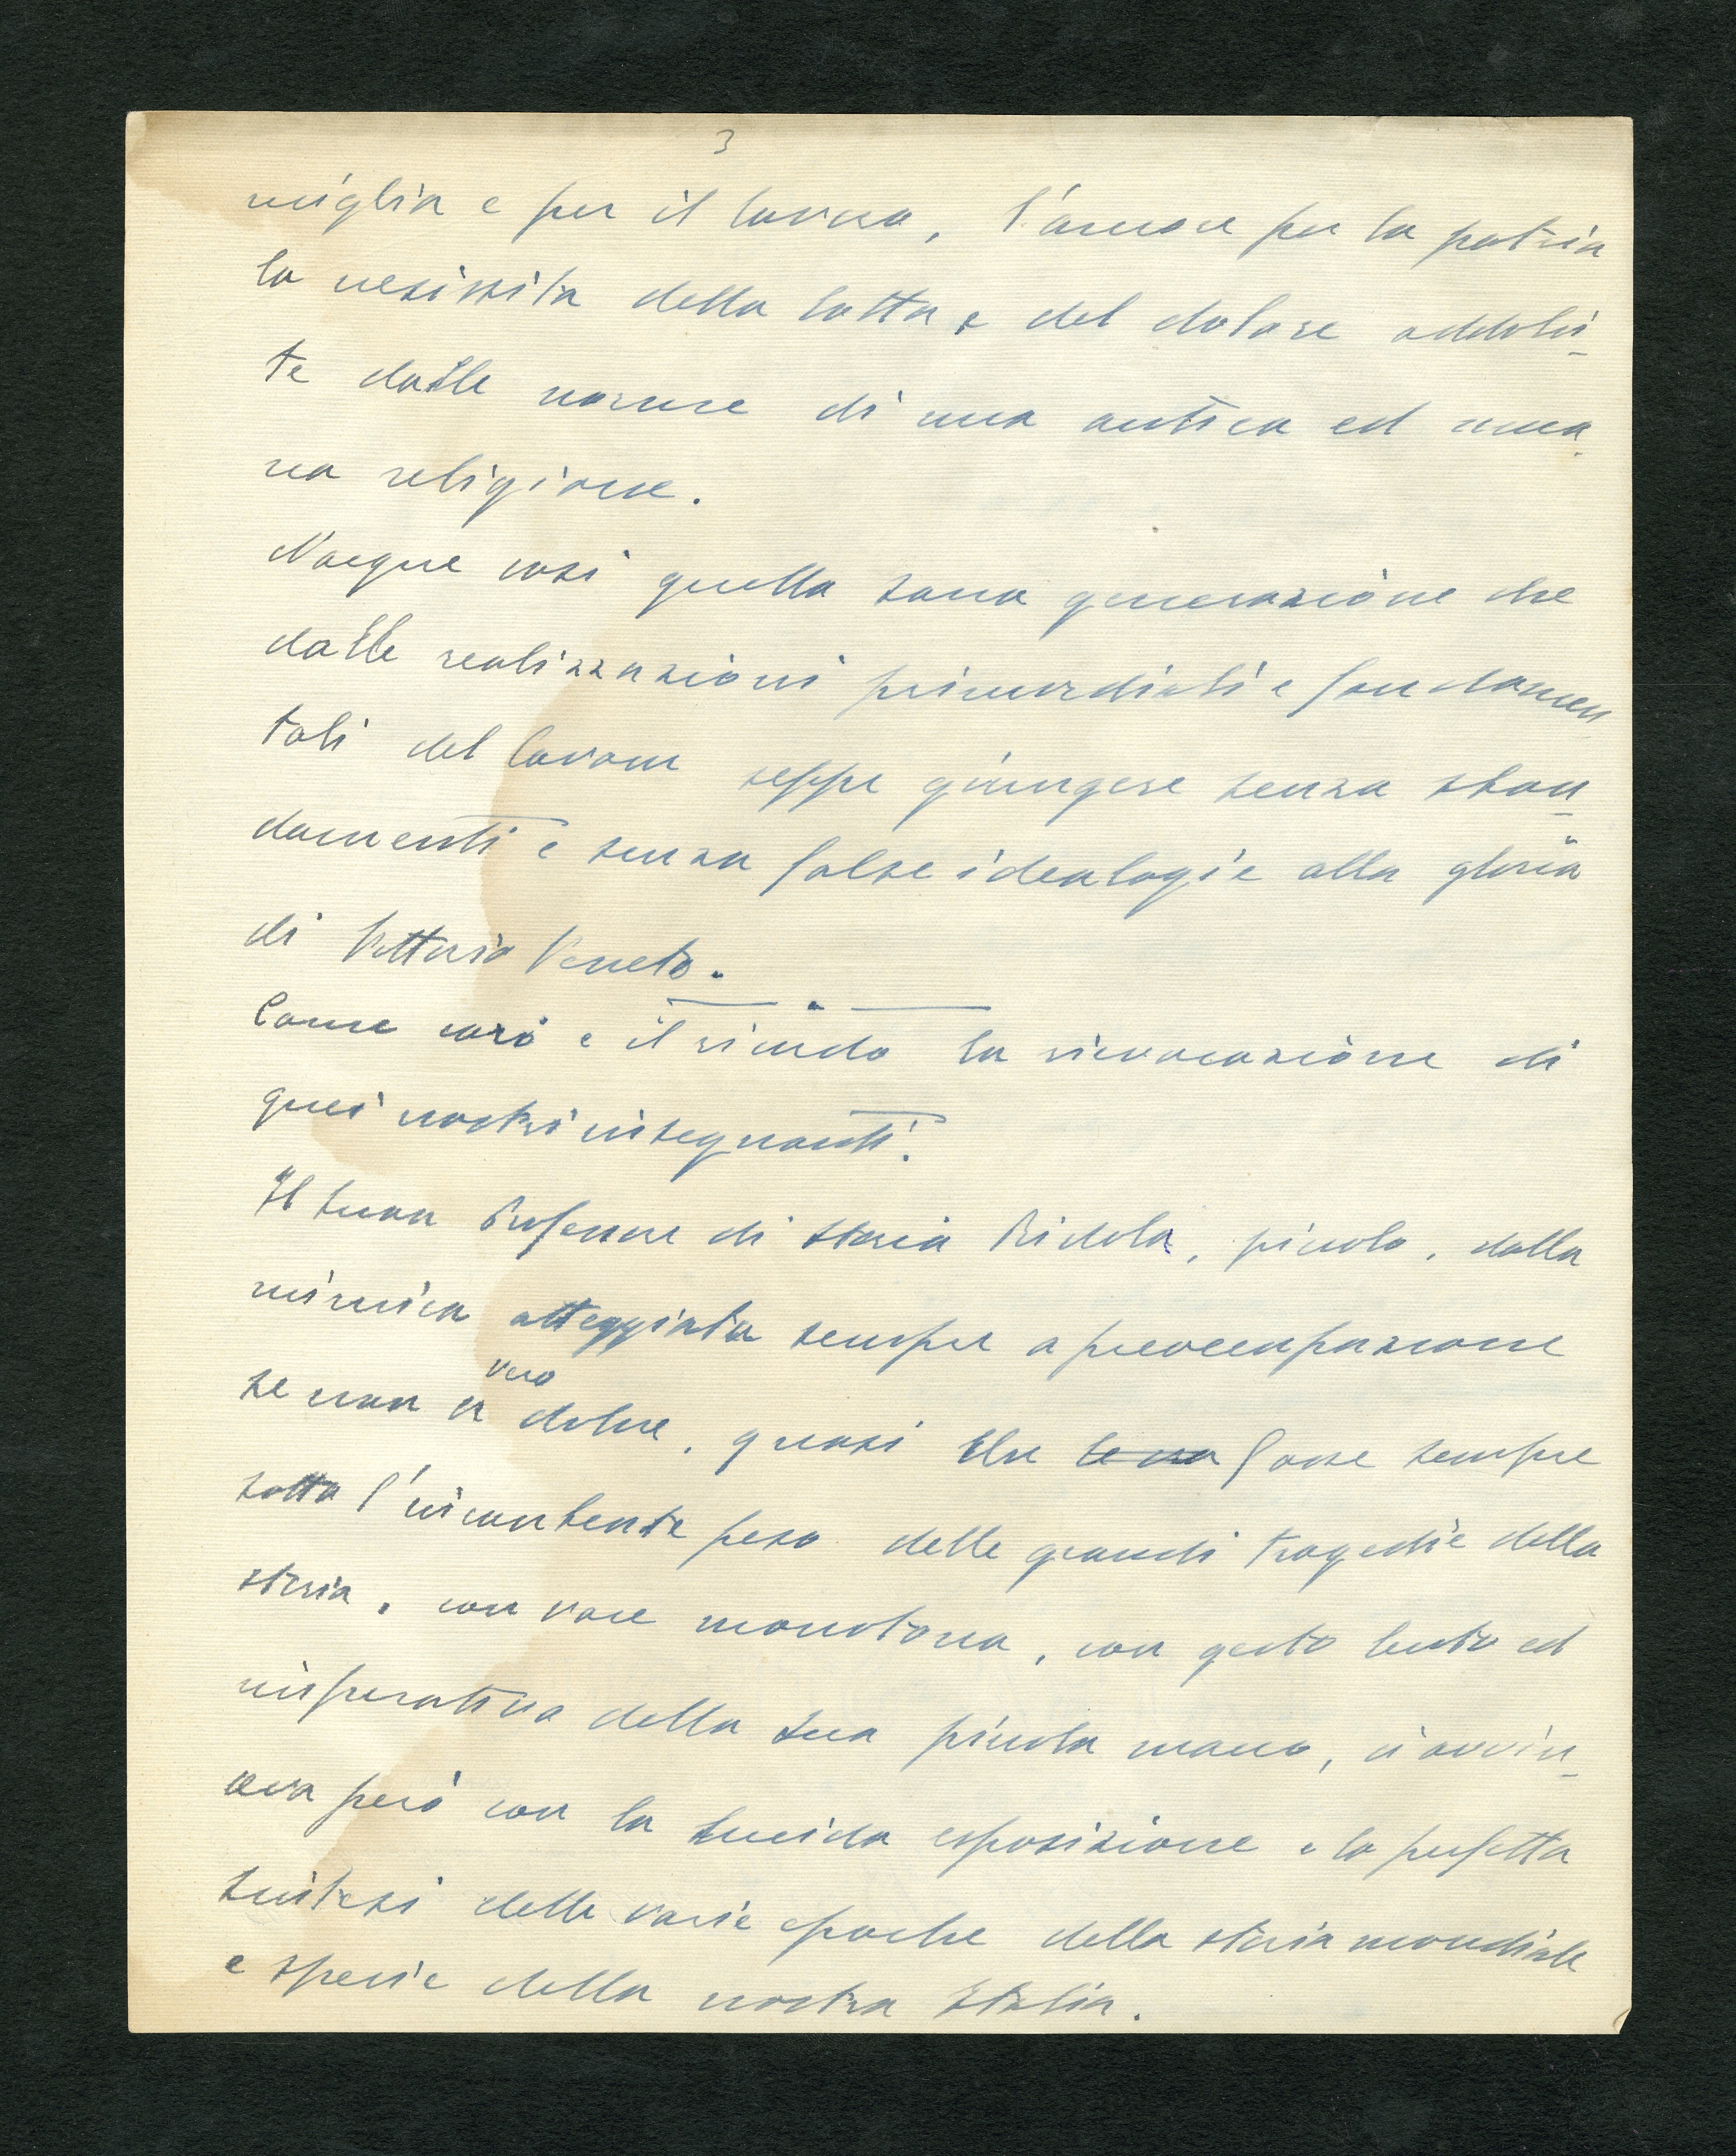 3
miglia e per il lavoro, l'amore per la patria
la necissita della lotta e del dolore addolci-
te dalle norme di una antica ed uma-
na religione.
Nacque così quella sana generazione che
dalle realizzazioni primordiali e fondamen
tali del lavoro seppe giungere senza sban-
damenti e senza false ideologie alla gloria
di Vittorio Veneto.
Come caro e il ricordo la rievocazione di
quei nostri insegnanti!
Il buon Professore di storia Ridola, piccolo, dalla
mimica atteggiata sempre a preoccupazione
se non a vero dolore, quasi che fosse sempre
sotto l'incombente peso delle grandi tragedie della
storia, con voce monotona, con gesto lento ed
imperativo della sua piccola mano, ci avvin-
ceva però con la lucida esposizione e la perfetta
sintesi delle varie epoche della storia mondiale
e specie della nostra Italia.